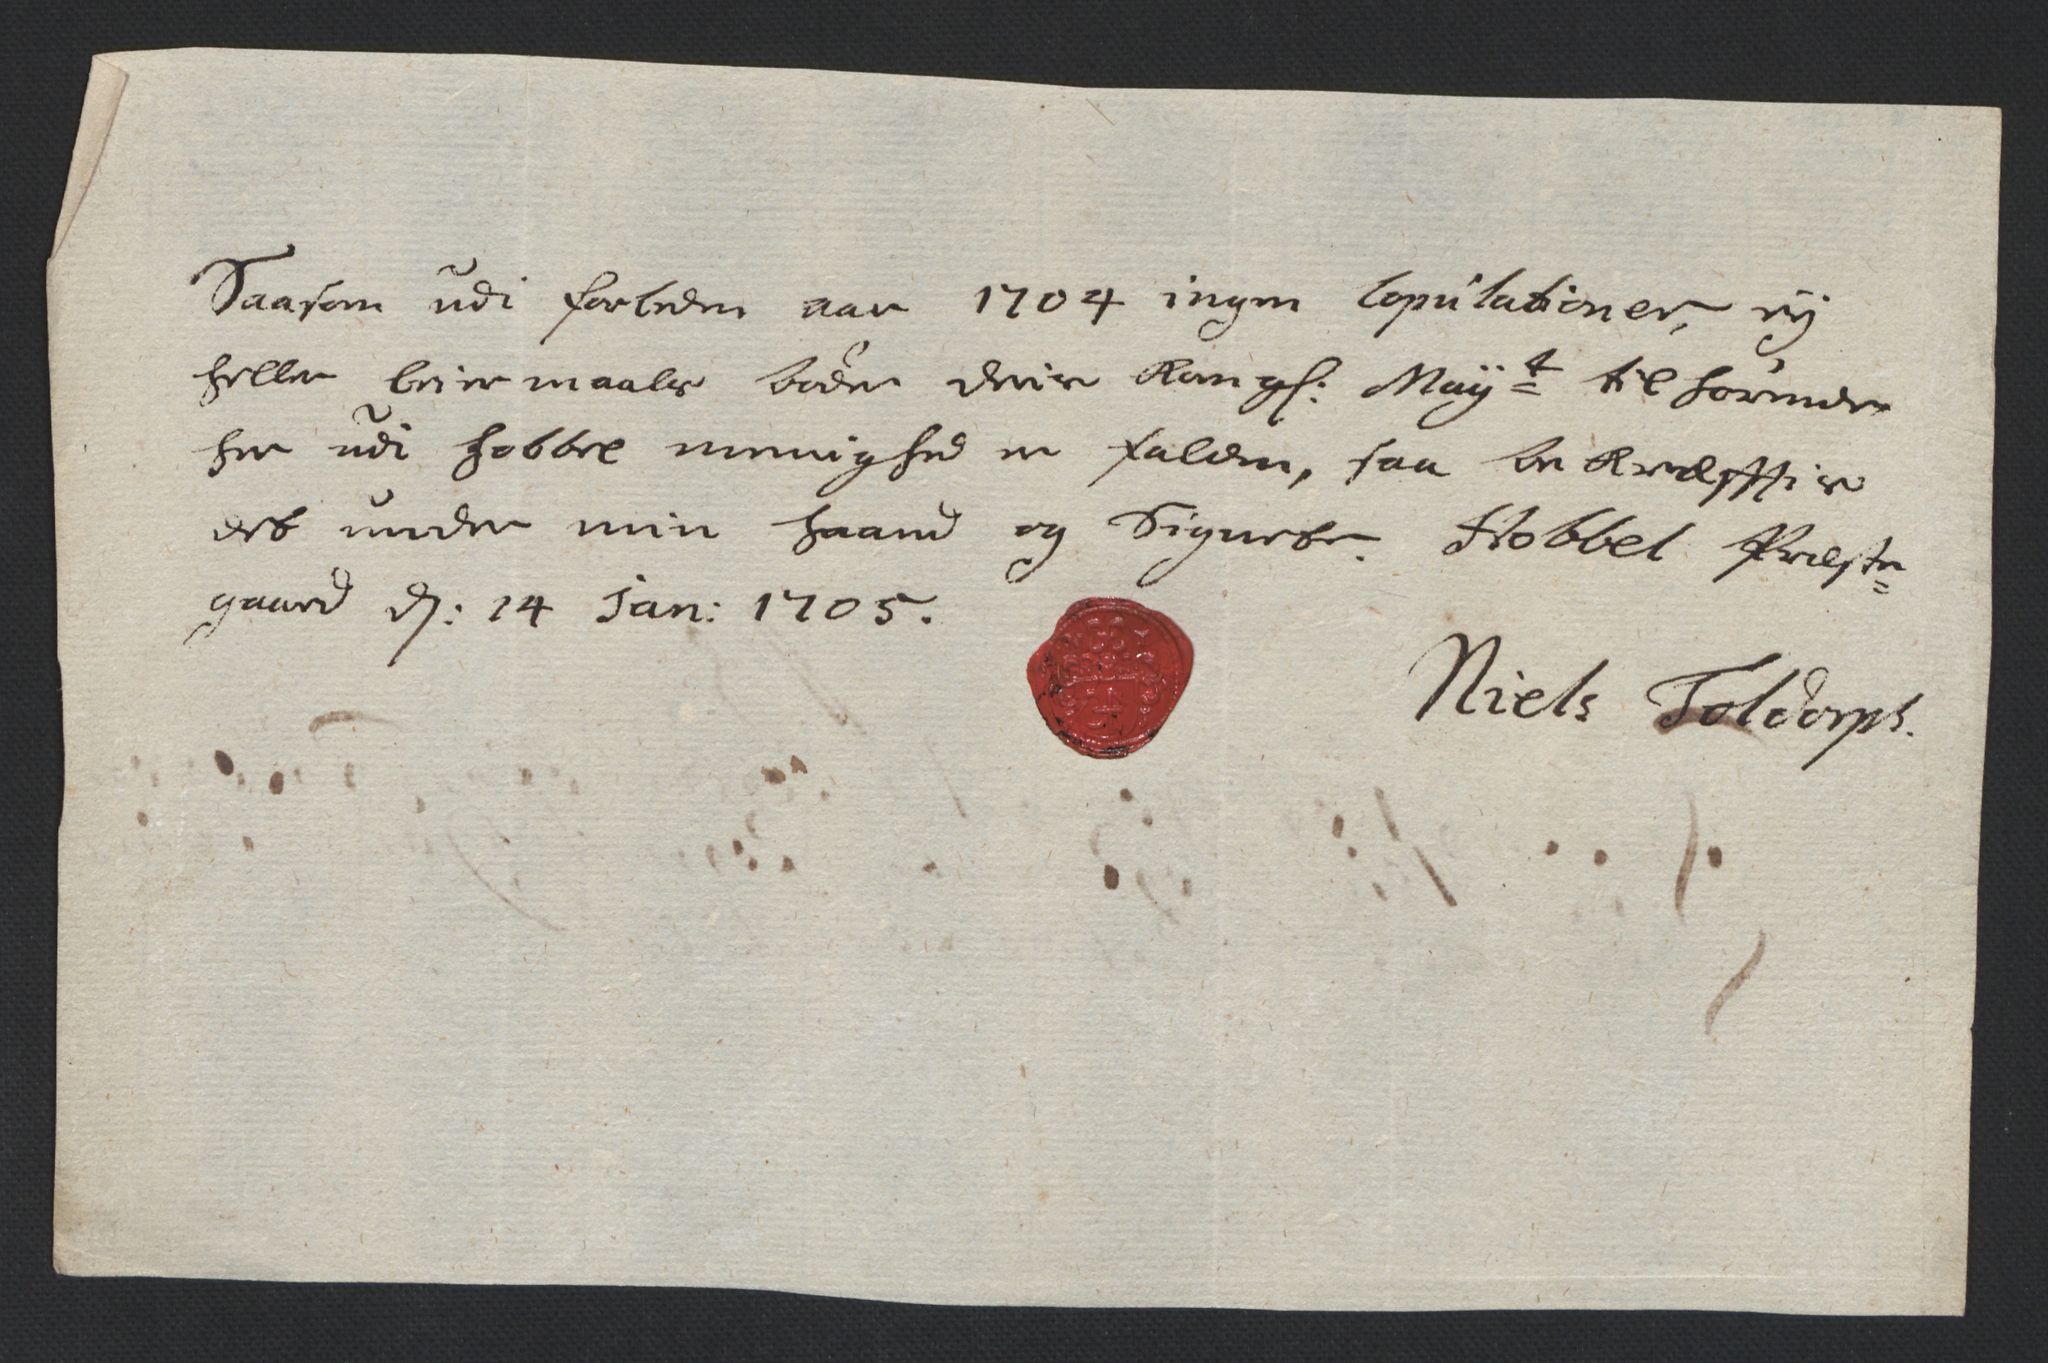 Saasom udi forleden aar 1704 ingen Copulationer, eÿ
heller leiermaals böder deris Kongl: Maÿt til hörende
her udi Hobbel meenighed er falden, saa bekræfftis
det under min haand og Signete. Hobbel Præste=
gaard d: 14 Jan: 1705.
Niels Toldorph.